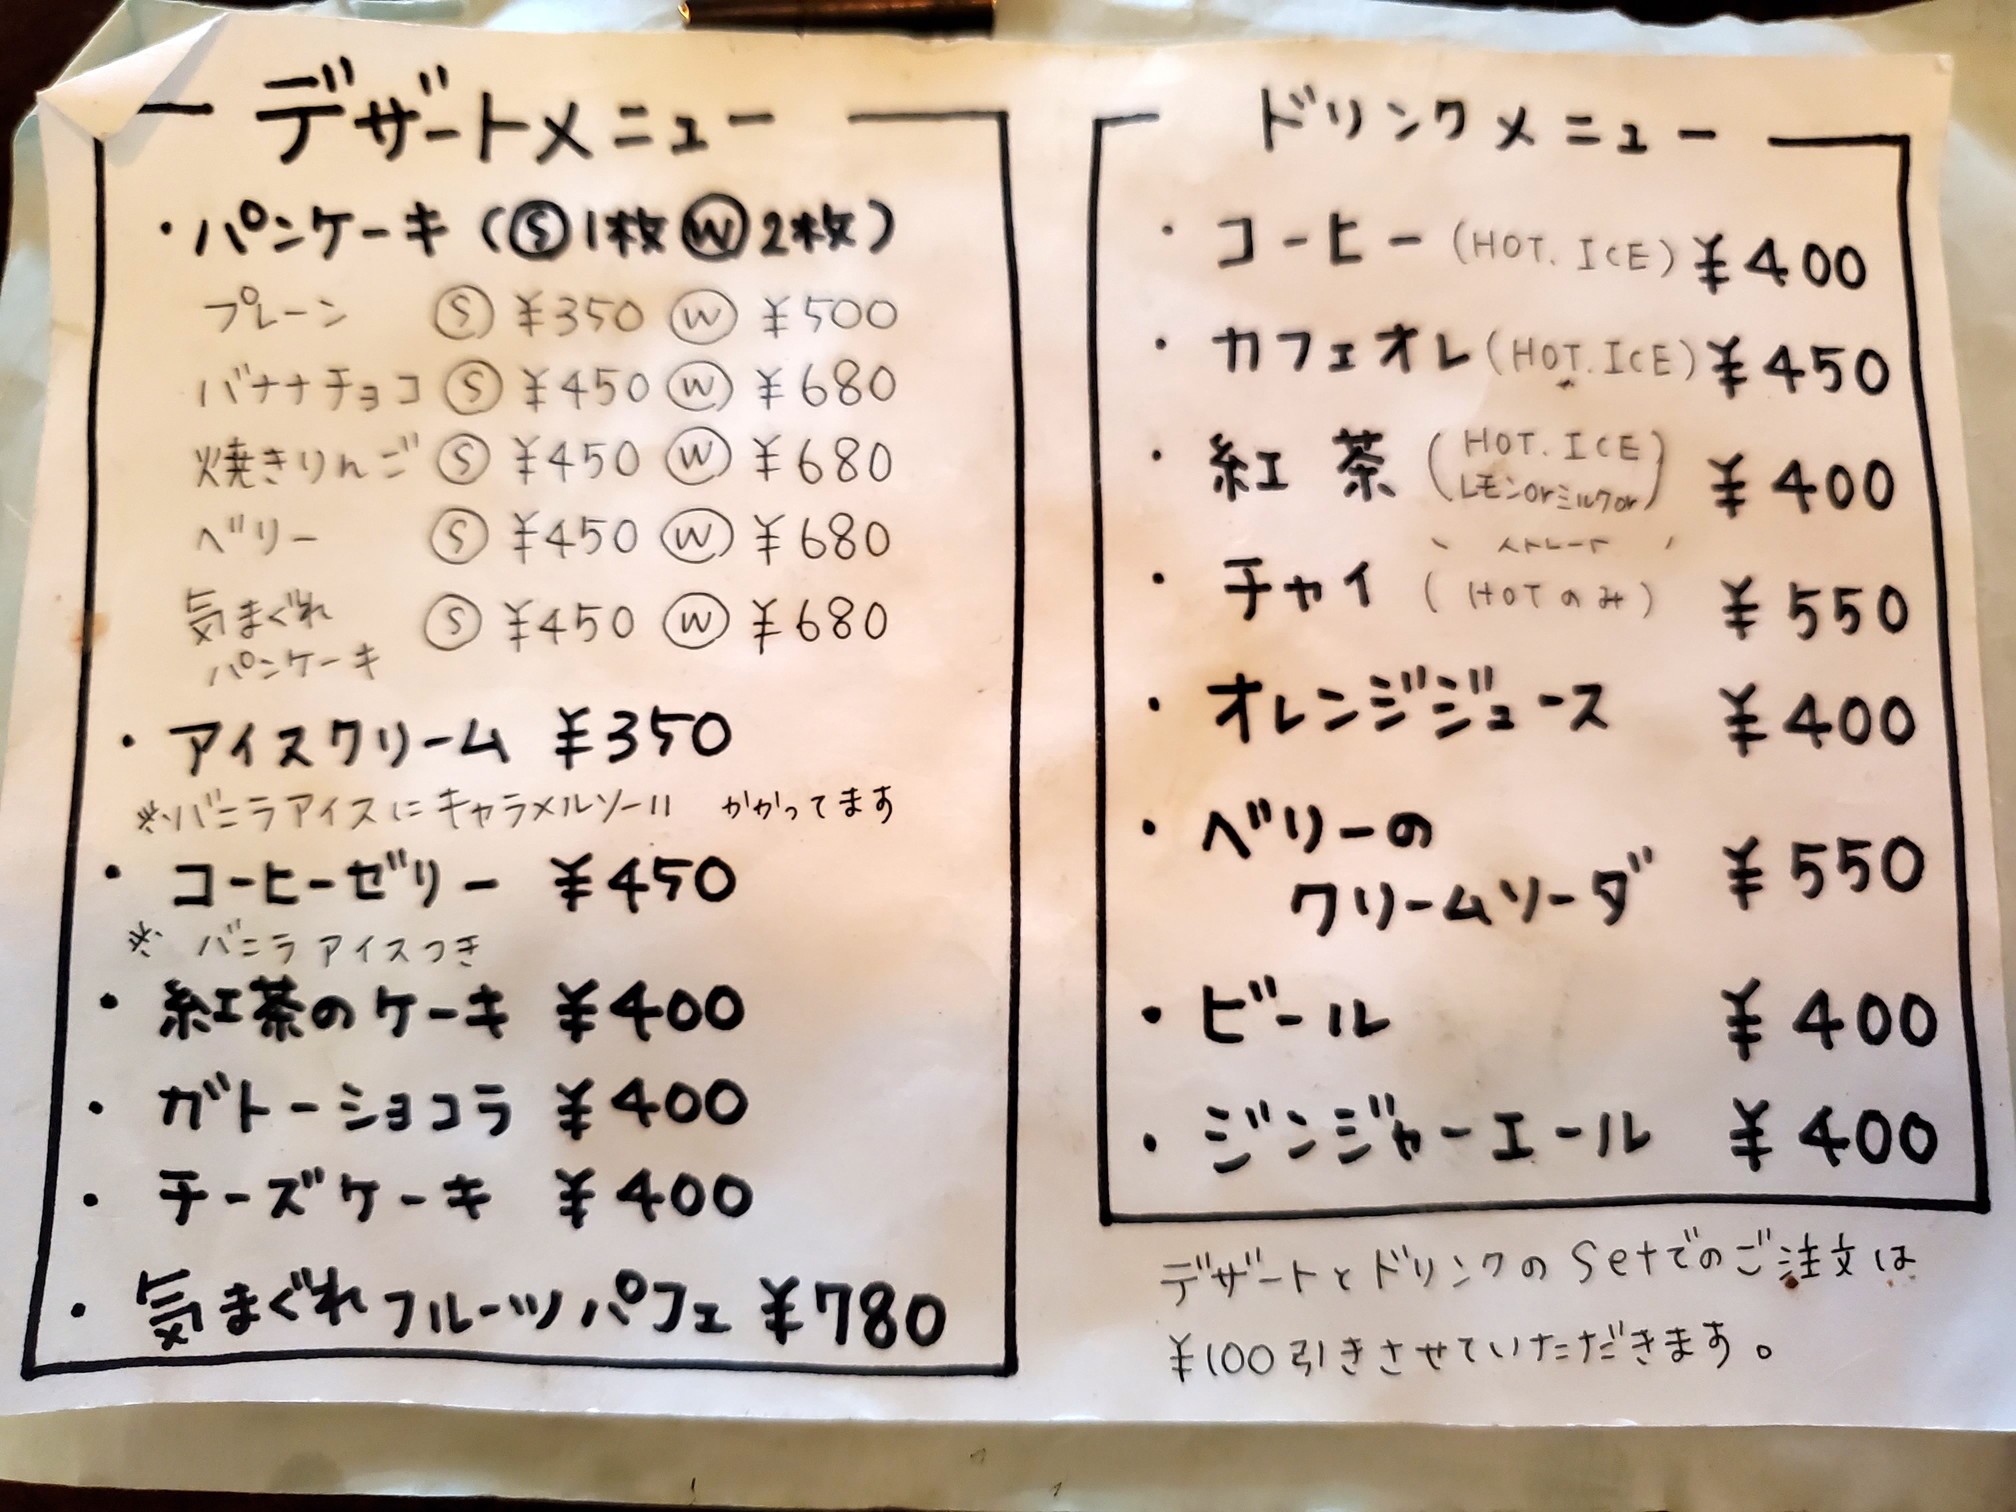 デザートメニュー
・パンケーキ(Ⓢ1枚 Ⓦ2枚)
プレーン Ⓢ ¥350 Ⓦ ¥500
バナナチョコ Ⓢ ¥450 Ⓦ ¥680
焼きりんご Ⓢ ¥450 Ⓦ ¥680
ベリー Ⓢ ¥450 Ⓦ ¥680
気まぐれ Ⓢ ¥450 Ⓦ ¥680
パンケーキ
・アイスクリーム ¥350
※バニラアイスにキャラメルソース かかってます
・コーヒーゼリー ¥450
※ バニラアイスつき
・紅茶のケーキ ¥400
・ガトーショコラ ¥400
・チーズケーキ ¥400
・気まぐれフルーツパフェ ¥780
ドリンクメニュー
・コーヒー(HOT. ICE) ¥400
・カフェオレ(HOT. ICE) ¥450
・紅茶 (HOT. ICE ¥400
レモンorミルクor
ストレート)
・チャイ (HOTのみ) ¥550
・オレンジジュース ¥400
・ベリーの
クリームソーダ ¥550
・ビール ¥400
・ジンジャーエール ¥400
デザートとドリンクのSetでのご注文は
¥100引きさせていただきます。